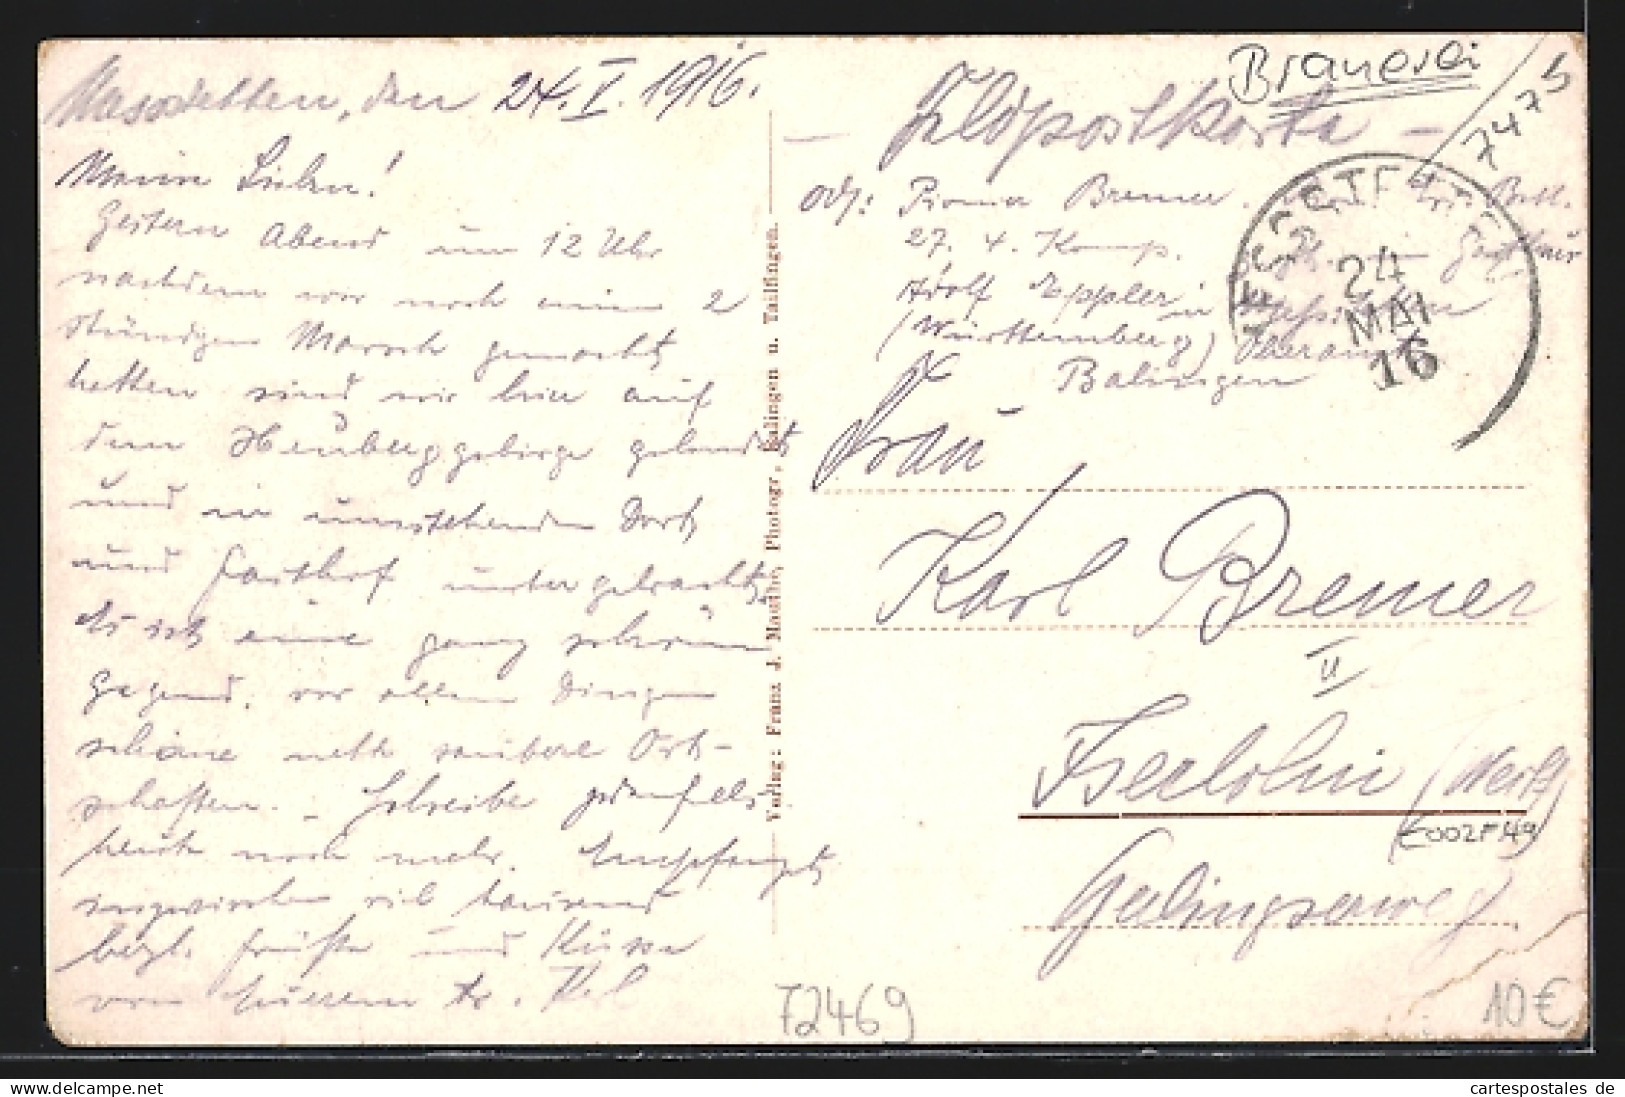 den 24. V. 1916.
Meine Lieben!
Gestern Abend um 12 Uhr
nachdem wir noch einen 2
stündigen Marsch gemacht
hatten sind wir hier auf
dem Heuberggebirge gelandet
und in umstehenden Dorf
und Gasthof untergebracht,
Es ist eine ganz schöne
Gegend, vor allen Dingen
schöne nette saubere Ort-
schaften. – Schreibe
heute noch mehr. Empfangt
inzwischen viel tausend
herzl. Grüße und Küsse
von Eurem Karl
Verlag: Franz J. Mauthe, Photogr., Balingen u. Tailfingen.
Brauerei
7475
– Feldpostkarte –
Abs: Bremer.
27. 4. Komp.
Adolf Eppler in
(Württemberg) Oberamt
Balingen
24
MAI
16
Frau
Karl Bremer
II
Iserlohn (Westf)
E002F49
Gerlingserweg
72469
10€
cartespostales de